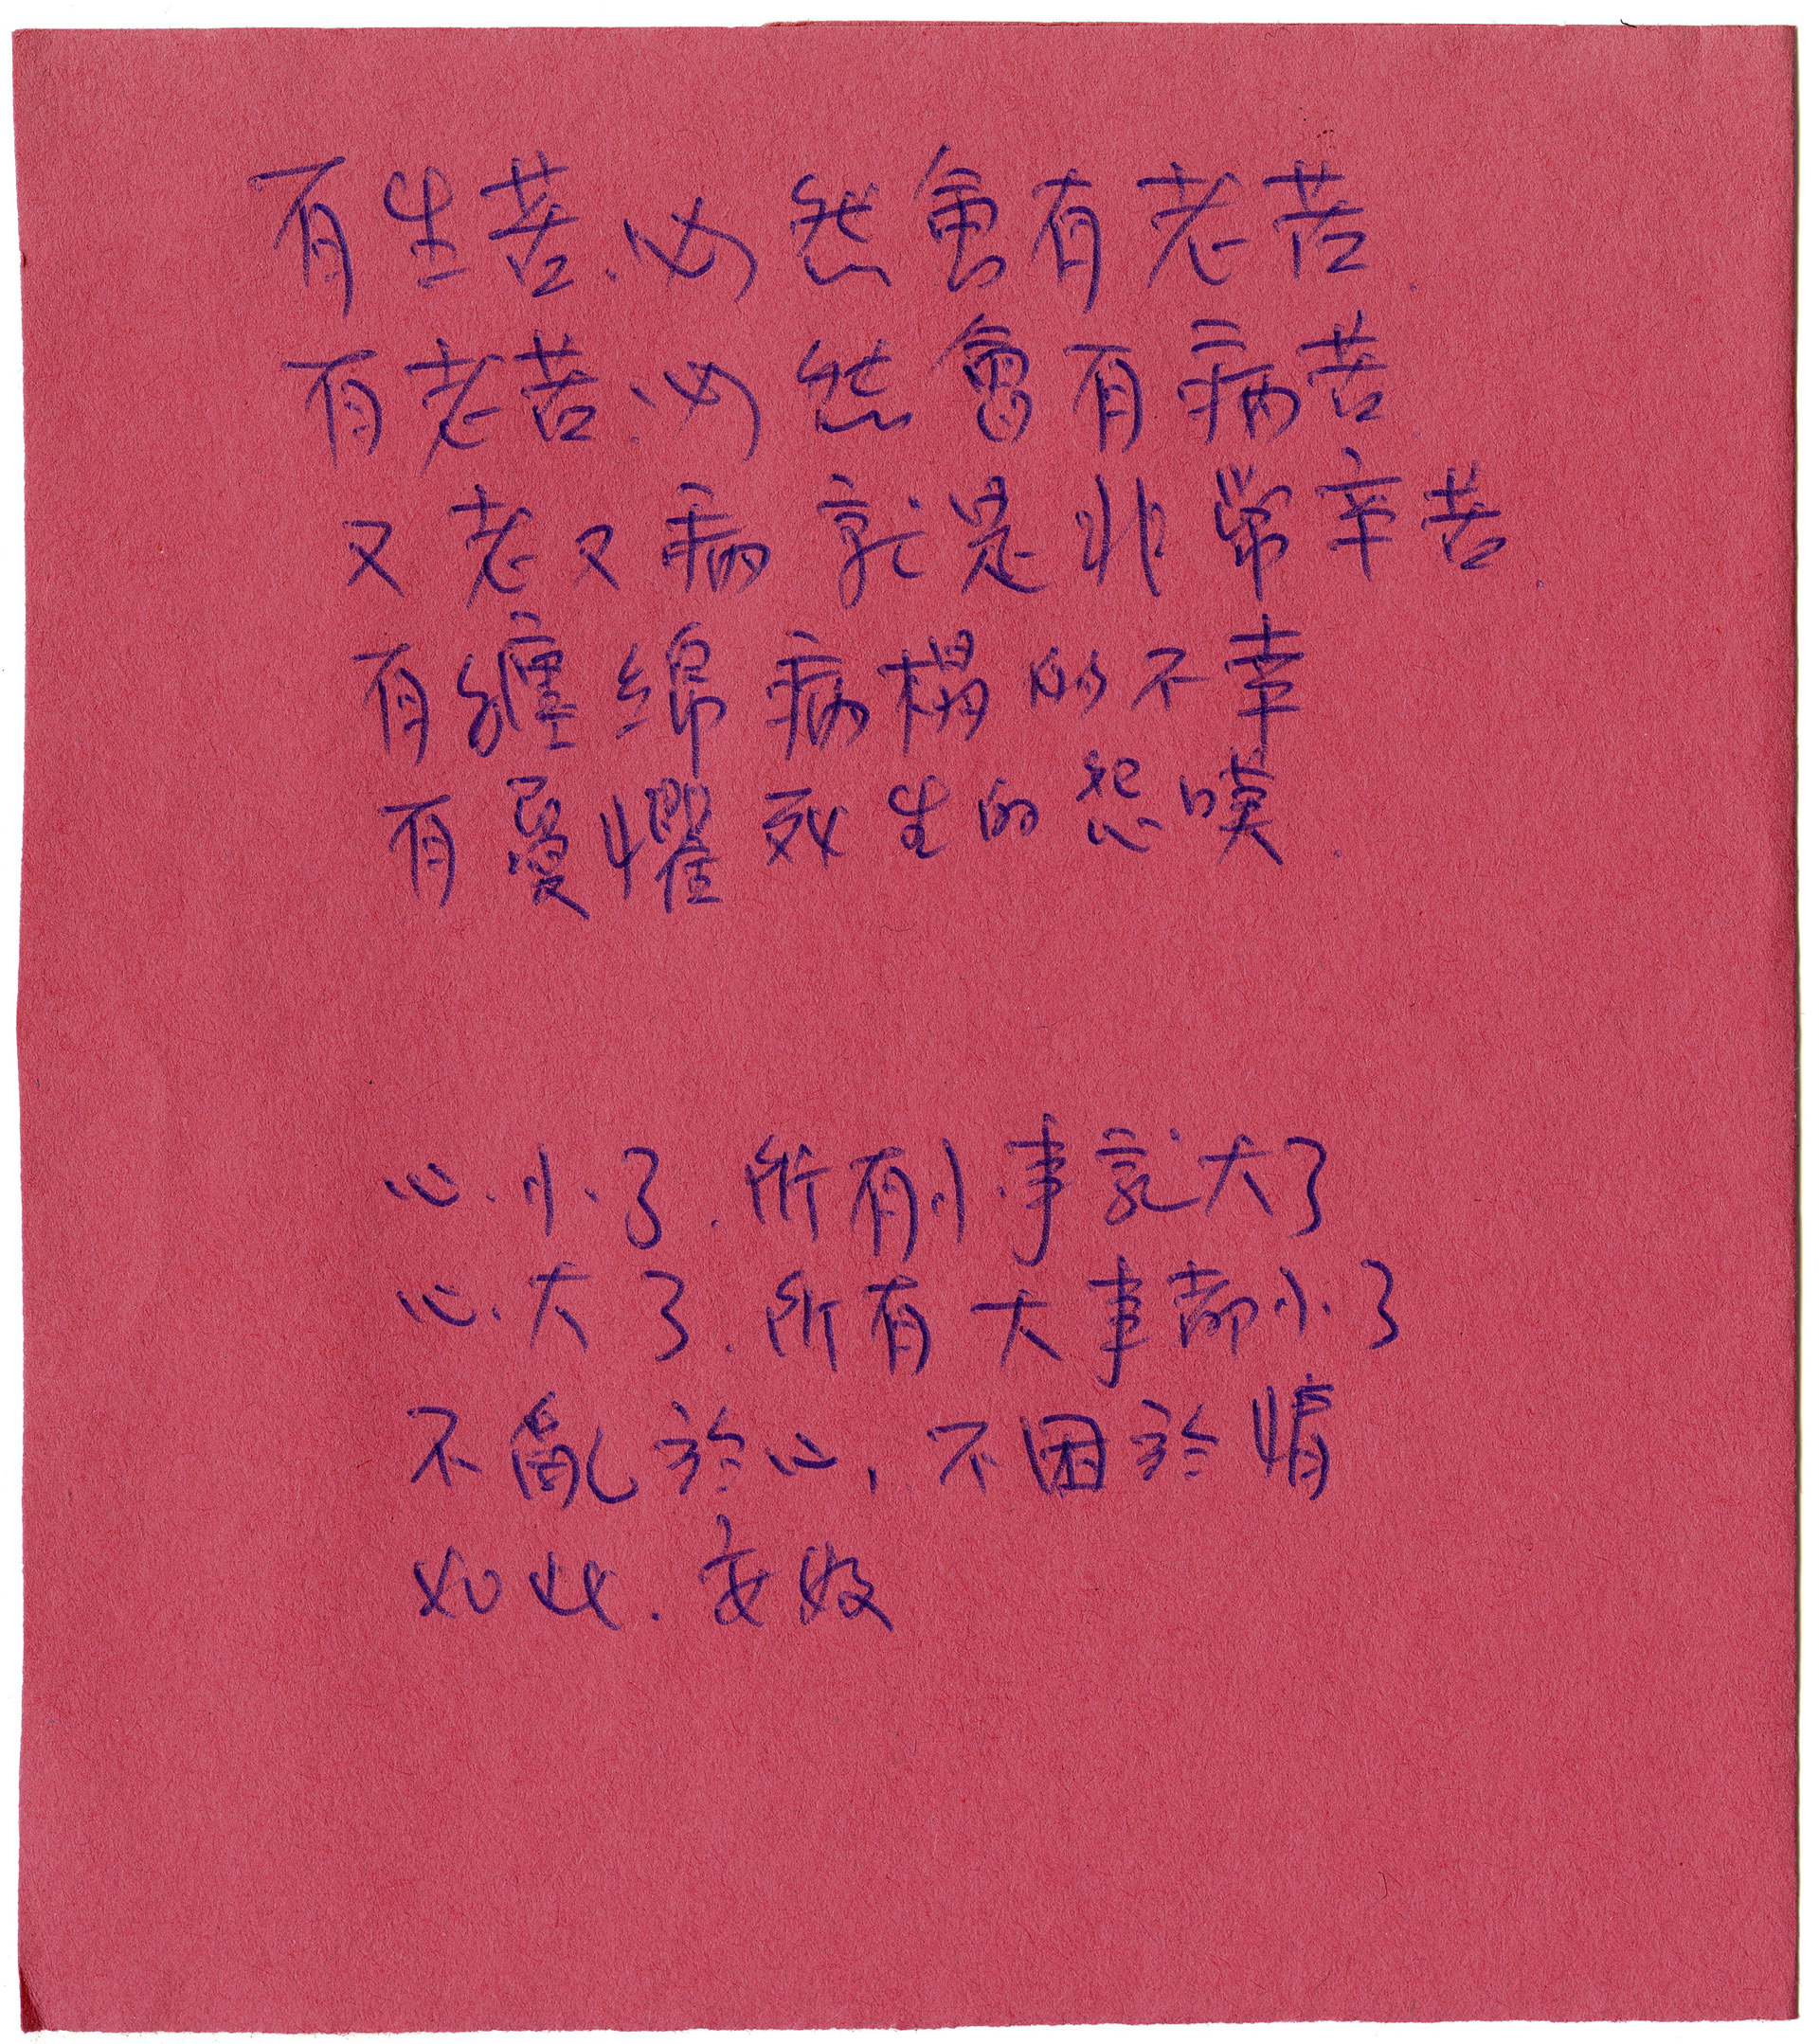 有生苦.必然會有老苦.
有老苦.必然會有病苦.
又老又病就是非常辛苦.
有纏綿病榻的不幸
有憂懼死生的怨嘆.
心小了.所有小事就大了
心大了.所有大事都小了
不亂於心,不困於情
如此.安好